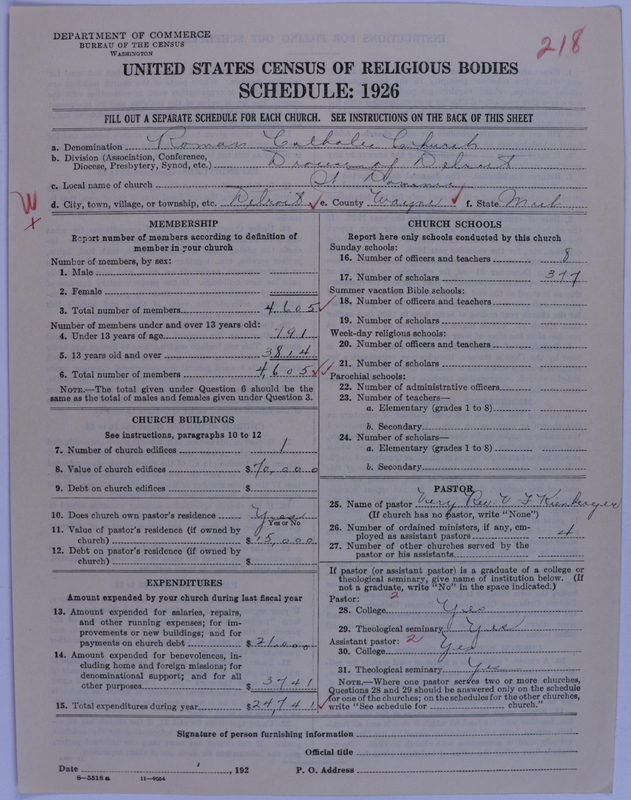 DEPARTMENT OF COMMERCE
BUREAU OF THE CENSUS
WASHINGTON
218
UNITED STATES CENSUS OF RELIGIOUS BODIES
SCHEDULE: 1926
FILL OUT A SEPARATE SCHEDULE FOR EACH CHURCH. SEE INSTRUCTIONS ON THE BACK OF THIS SHEET
a. Denomination Roman Catholic Church
b. Division (Association, Conference, Diocese, Presbytery, Synod, etc.) Diocese of Detroit
c. Local name of church St Dominic
d. City, town, village, or township, etc. Detroit e. County Wayne f. State Mich
W
x
MEMBERSHIP
Report number of members according to definition of
member in your church
Number of members, by sex:
1. Male
2. Female
3. Total number of members 4605
Number of members under and over 13 years old:
4. Under 13 years of age 791
5. 13 years old and over 3814
6. Total number of members 4,605
NOTE.—The total given under Question 6 should be
same as the total of males and females given under Question 3.
CHURCH BUILDINGS
See instructions, paragraphs 10 to 12
7. Number of church edifices 1
8. Value of church edifices $70,000
9. Debt on church edifices $
10. Does church own pastor's residence Yes
Yes or No
11. Value of pastor's residence (if owned by
church) $15,000
12. Debt on pastor's residence (if owned by
church) $
EXPENDITURES
Amount expended by your church during last fiscal year
13. Amount expended for salaries, repairs,
and other running expenses; for im-
provements or new buildings; and for
payments on church debt $21,000
14. Amount expended for benevolences, in-
cluding home and foreign missions; for
denominational support; and for all
other purposes $3741
15. Total expenditures during year $24,741
CHURCH SCHOOLS
Report here only schools conducted by this church
Sunday schools:
16. Number of officers and teachers 8
17. Number of scholars 377
Summer vacation Bible schools:
18. Number of officers and teachers
19. Number of scholars
Week-day religious schools:
20. Number of officers and teachers
21. Number of scholars
Parochial schools:
22. Number of administrative officers
23. Number of teachers—
a. Elementary (grades 1 to 8)
b. Secondary
24. Number of scholars—
a. Elementary (grades 1 to 8)
b. Secondary
PASTOR
25. Name of pastor Very Rev
(If church has no pastor, write "None")
26. Number of ordained ministers, if any, em-
ployed as assistant pastors 4
27. Number of other churches served by the
pastor or his assistants
If pastor (or assistant pastor) is a graduate of a college or
theological seminary, give name of institution below. (If
not a graduate, write "No" in the space indicated.)
Pastor: 2
28. College Yes
29. Theological seminary Yes
Assistant pastor: 2
30. College Yes
31. Theological seminary Yes
NOTE.—Where one pastor serves two or more churches,
Questions 28 and 29 should be answered only on the schedule
for one of the churches; on the schedules for the other churches,
write "See schedule for church."
Signature of person furnishing information
Official title
Date , 192 P. O. Address
8—5518a 11—9054